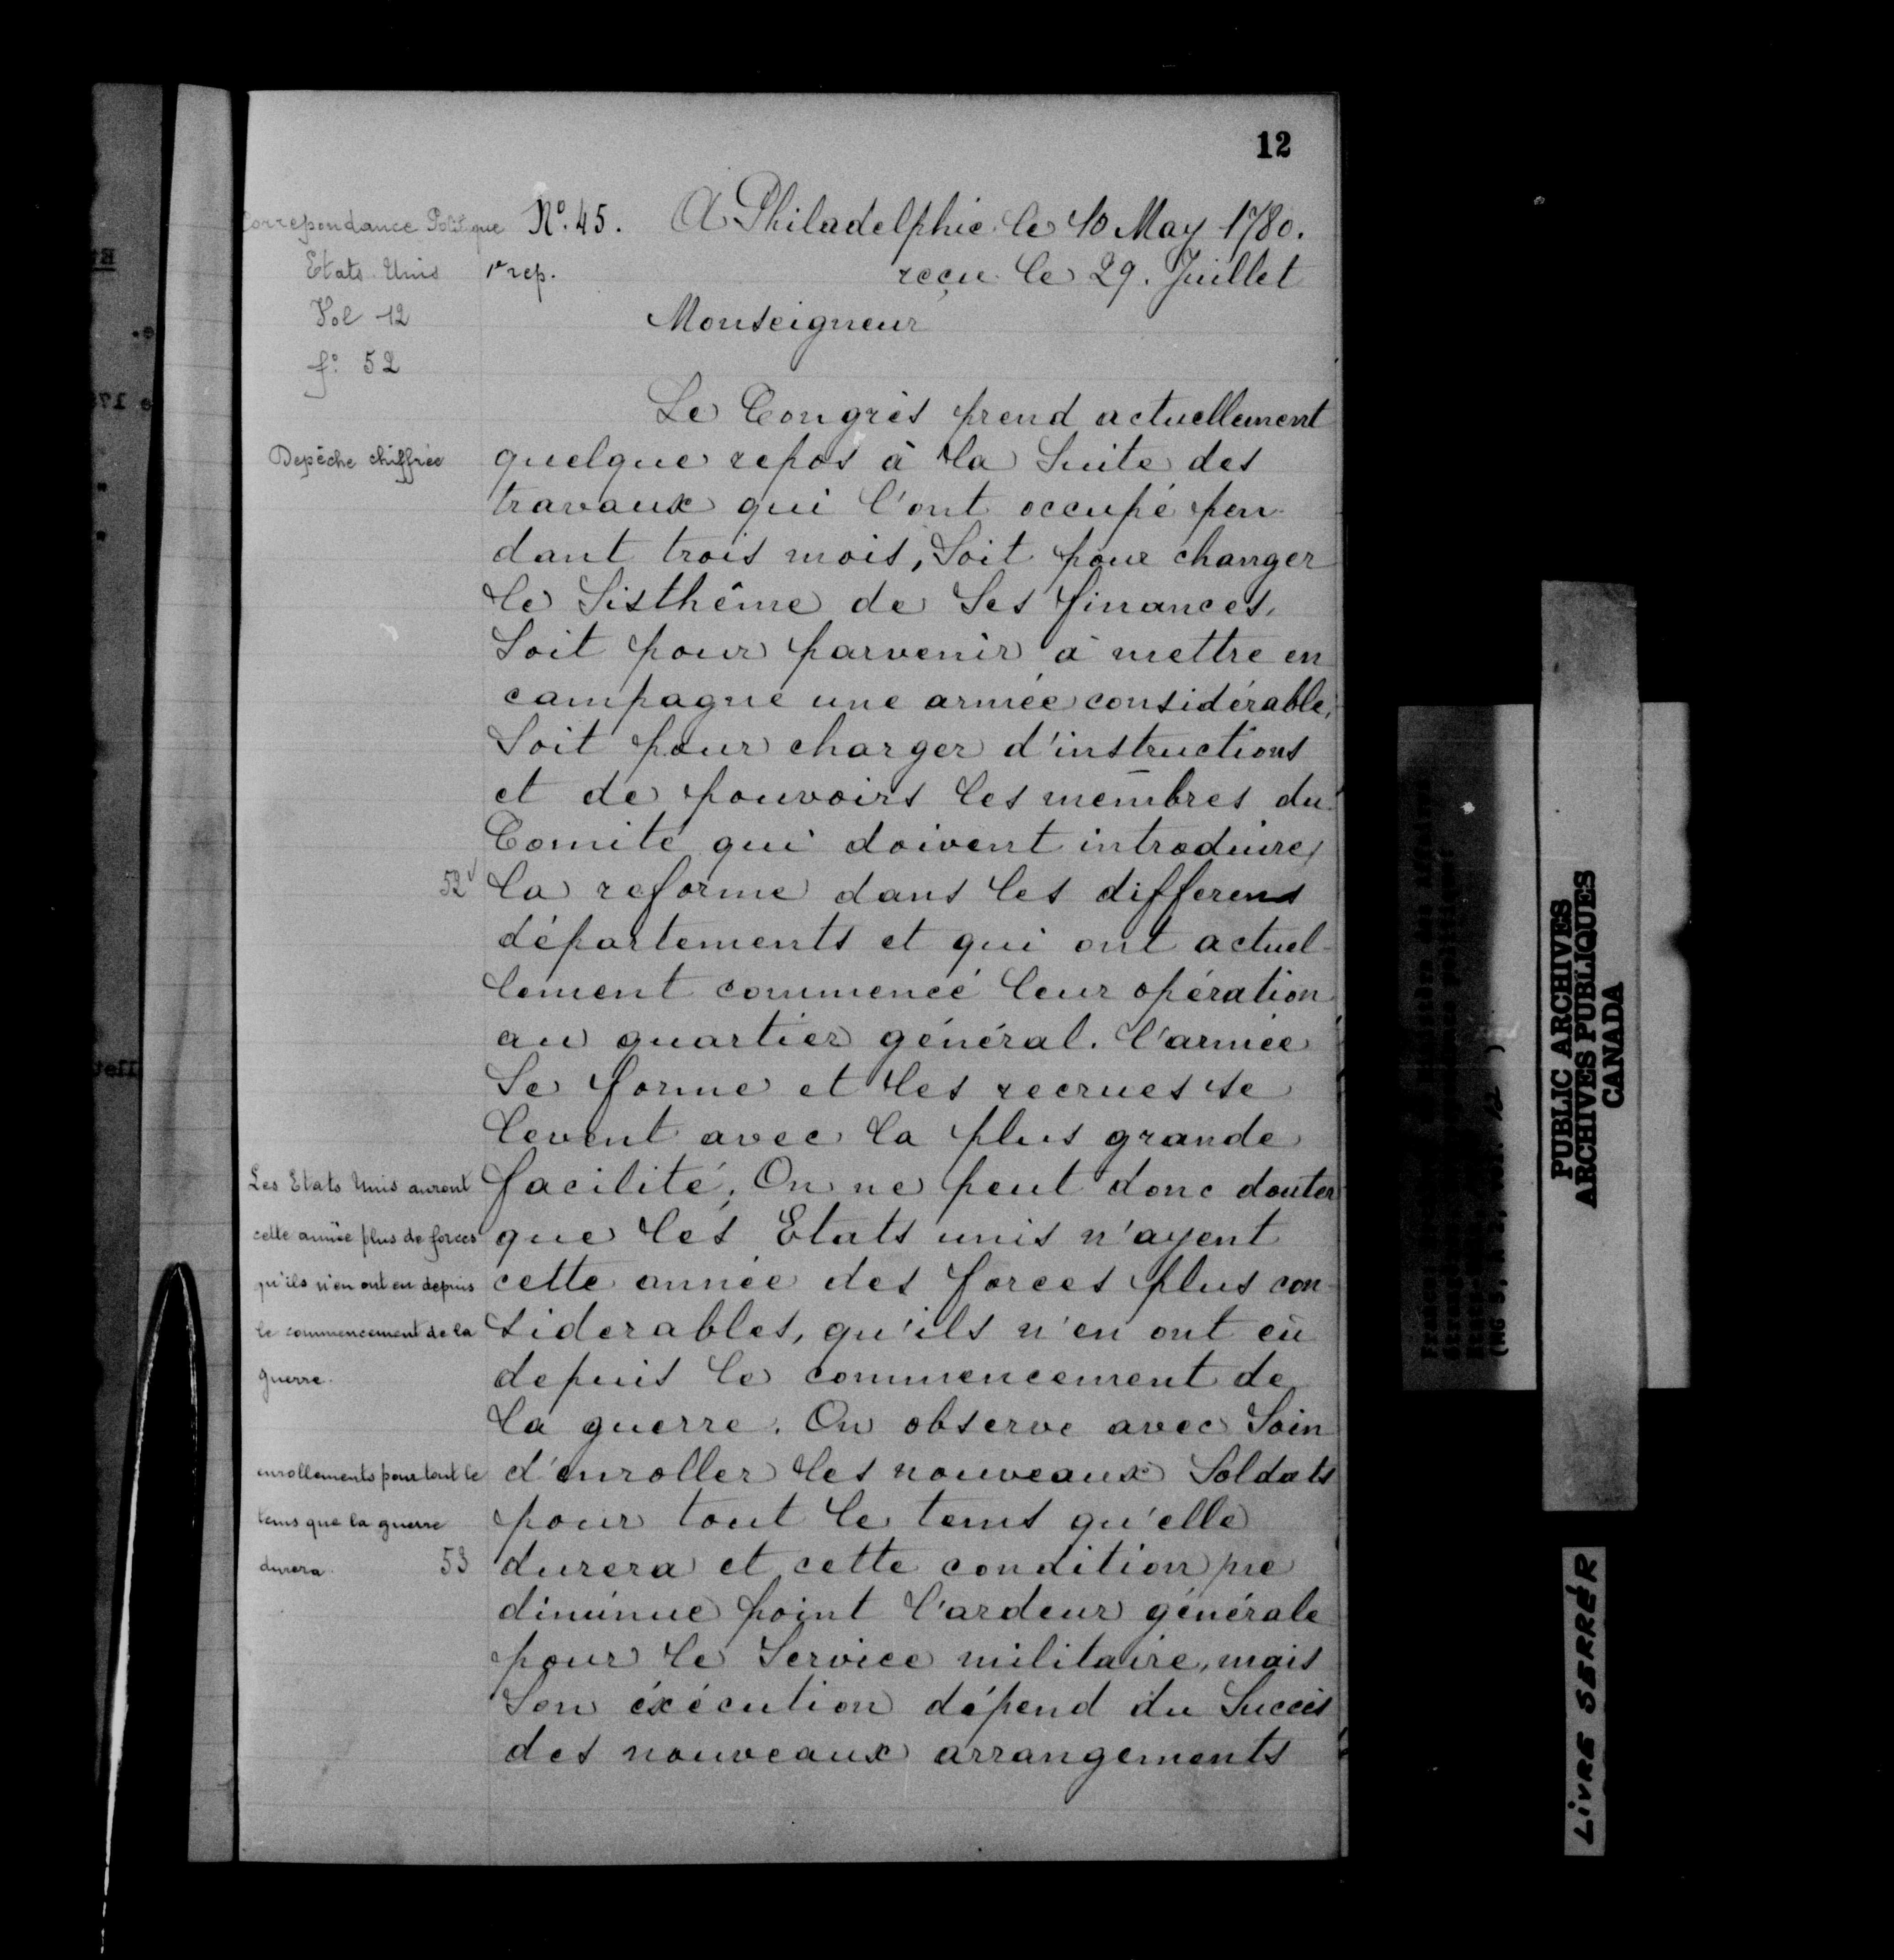 12
Correspondance Politique
Etats-Unis
Vol 12
f° 52
N° 45. A Philadelphie le 10 May 1780.
1e rep. reçu le 29. Juillet
Monseigneur
Le Congrès prend actuellement
Depêche chiffrée
quelque repos à la Suite des
travaux qui l'ont occupé pen-
dant trois mois, Soit pour changer
le Sisthême de Ses finances,
Soit pour parvenir à mettre en
campagne une armée considérable,
Soit pour charger d'instructions
et de pouvoirs les membres du
Comité qui doivent introduire
52v la reforme dans les differens
départements et qui ont actuel-
lement commencé leur opération
au quartier général. l'armée
Se forme et les recrues se
levent avec la plus grande
facilité, On ne peut donc douter
que les Etats unis n'ayent
cette année des forces plus con-
siderables, qu'ils n'en ont eû
depuis le commencement de
la guerre. On observe avec Soin
Les Etats Unis auront
cette année plus de forces
qu'ils n'en ont eu depuis
le commencement de la
guerre.
d'enroller les nouveaux Soldats
pour tout le tems qu'elle
53 durera et cette condition ne
diminue point l'ardeur générale
pour le Service militaire, mais
Son éxécution dépend du Succès
des nouveaux arrangements
enrollements pour tout le
tems que la guerre
durera.
PUBLIC ARCHIVES
ARCHIVES PUBLIQUES
CANADA
LIVRE SERRÉR